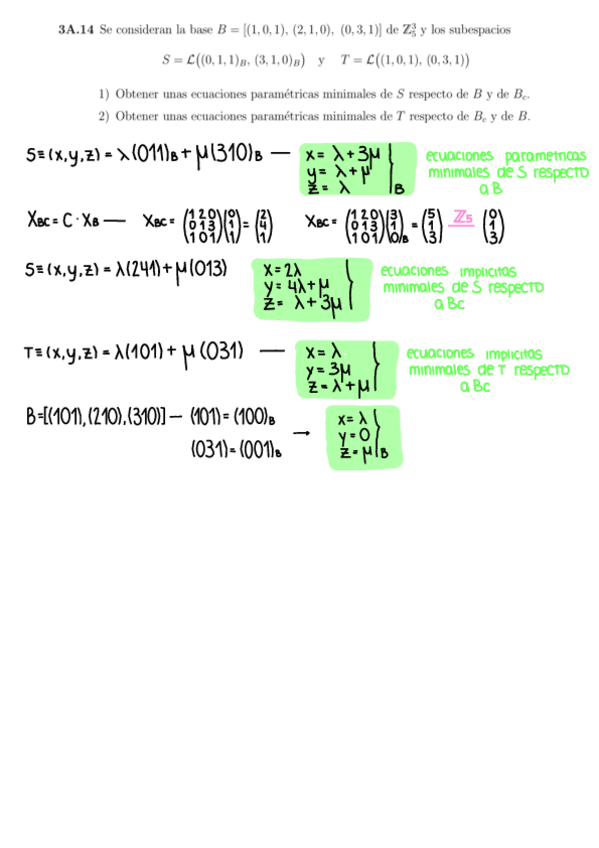 3A.14 Se consideran la base B = [(1, 0, 1), (2, 1, 0), (0, 3, 1)] de ℤ₅³ y los subespacios
S = ℒ((0, 1, 1)_B, (3, 1, 0)_B) y T = ℒ((1, 0, 1), (0, 3, 1))
1) Obtener unas ecuaciones paramétricas minimales de S respecto de B y de B_c.
2) Obtener unas ecuaciones paramétricas minimales de T respecto de B_c y de B.
S≡(x,y,z)=λ(011)_B+μ(310)_B — x=λ+3μ y=λ+μ z=λ |_B ecuaciones parametricas minimales de S respecto a B
X_BC=C·X_B — X_BC=(1 2 0 / 0 1 3 / 1 0 1)(0 / 1 / 1)=(2 / 4 / 1) X_BC=(1 2 0 / 0 1 3 / 1 0 1)(3 / 1 / 0)_B=(5 / 1 / 3) ℤ₅ (0 / 1 / 3)
S≡(x,y,z)=λ(241)+μ(013) x=2λ y=4λ+μ z=λ+3μ } ecuaciones implicitas minimales de S respecto a Bc
T≡(x,y,z)=λ(101)+μ(031) — x=λ y=3μ z=λ+μ } ecuaciones implicitas minimales de T respecto a Bc
B=[(101),(210),(310)]— (101)=(100)_B
(031)=(001)_B → x=λ y=0 z=μ }_B